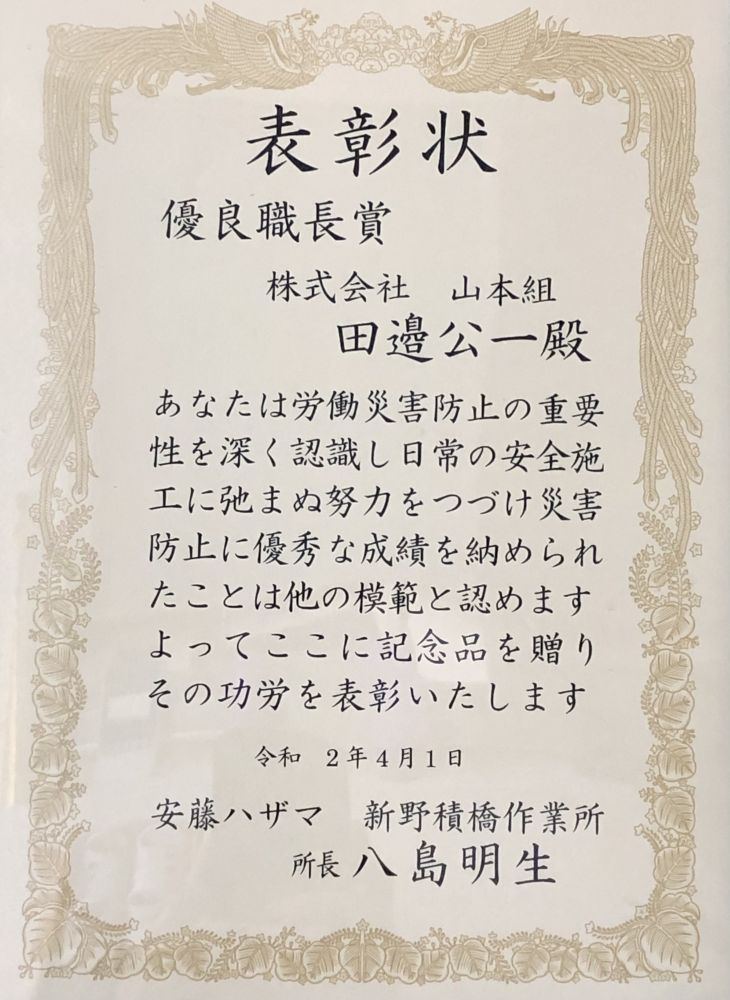 表彰状
優良職長賞
株式会社　山本組
田邉公一殿
あなたは労働災害防止の重要
性を深く認識し日常の安全施
工に弛まぬ努力をつづけ災害
防止に優秀な成績を納められ
たことは他の模範と認めます
よってここに記念品を贈り
その功労を表彰いたします
令和　2年4月1日
安藤ハザマ　新野積橋作業所
所長 八島明生